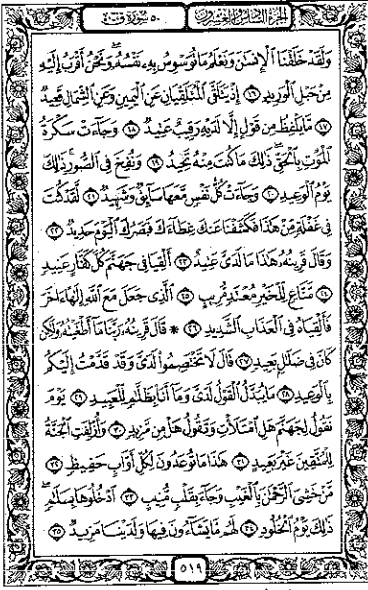 الجزء السادس والعشرون ٥٠ سورة ق
وَلَقَدْ خَلَقْنَا ٱلْإِنسَٰنَ وَنَعْلَمُ مَا تُوَسْوِسُ بِهِۦ نَفْسُهُۥ وَنَحْنُ أَقْرَبُ إِلَيْهِ
مِنْ حَبْلِ ٱلْوَرِيدِ ١٦ إِذْ يَتَلَقَّى ٱلْمُتَلَقِّيَانِ عَنِ ٱلْيَمِينِ وَعَنِ ٱلشِّمَالِ قَعِيدٌ
١٧ مَّا يَلْفِظُ مِن قَوْلٍ إِلَّا لَدَيْهِ رَقِيبٌ عَتِيدٌ ١٨ وَجَآءَتْ سَكْرَةُ
ٱلْمَوْتِ بِٱلْحَقِّ ذَٰلِكَ مَا كُنتَ مِنْهُ تَحِيدُ ١٩ وَنُفِخَ فِى ٱلصُّورِ ذَٰلِكَ
يَوْمُ ٱلْوَعِيدِ ٢٠ وَجَآءَتْ كُلُّ نَفْسٍ مَّعَهَا سَآئِقٌ وَشَهِيدٌ ٢١ لَّقَدْ كُنتَ
فِى غَفْلَةٍ مِّنْ هَٰذَا فَكَشَفْنَا عَنكَ غِطَآءَكَ فَبَصَرُكَ ٱلْيَوْمَ حَدِيدٌ ٢٢
وَقَالَ قَرِينُهُۥ هَٰذَا مَا لَدَىَّ عَتِيدٌ ٢٣ أَلْقِيَا فِى جَهَنَّمَ كُلَّ كَفَّارٍ عَنِيدٍ
٢٤ مَّنَّاعٍ لِّلْخَيْرِ مُعْتَدٍ مُّرِيبٍ ٢٥ ٱلَّذِى جَعَلَ مَعَ ٱللَّهِ إِلَٰهًا ءَاخَرَ
فَأَلْقِيَاهُ فِى ٱلْعَذَابِ ٱلشَّدِيدِ ٢٦ * قَالَ قَرِينُهُۥ رَبَّنَا مَآ أَطْغَيْتُهُۥ وَلَٰكِن
كَانَ فِى ضَلَٰلٍۭ بَعِيدٍ ٢٧ قَالَ لَا تَخْتَصِمُوا۟ لَدَىَّ وَقَدْ قَدَّمْتُ إِلَيْكُم
بِٱلْوَعِيدِ ٢٨ مَا يُبَدَّلُ ٱلْقَوْلُ لَدَىَّ وَمَآ أَنَا۠ بِظَلَّٰمٍ لِّلْعَبِيدِ ٢٩ يَوْمَ
نَقُولُ لِجَهَنَّمَ هَلِ ٱمْتَلَأْتِ وَتَقُولُ هَلْ مِن مَّزِيدٍ ٣٠ وَأُزْلِفَتِ ٱلْجَنَّةُ
لِلْمُتَّقِينَ غَيْرَ بَعِيدٍ ٣١ هَٰذَا مَا تُوعَدُونَ لِكُلِّ أَوَّابٍ حَفِيظٍ ٣٢
مَّنْ خَشِىَ ٱلرَّحْمَٰنَ بِٱلْغَيْبِ وَجَآءَ بِقَلْبٍ مُّنِيبٍ ٣٣ ٱدْخُلُوهَا بِسَلَٰمٍ
ذَٰلِكَ يَوْمُ ٱلْخُلُودِ ٣٤ لَهُم مَّا يَشَآءُونَ فِيهَا وَلَدَيْنَا مَزِيدٌ ٣٥
٥١٩